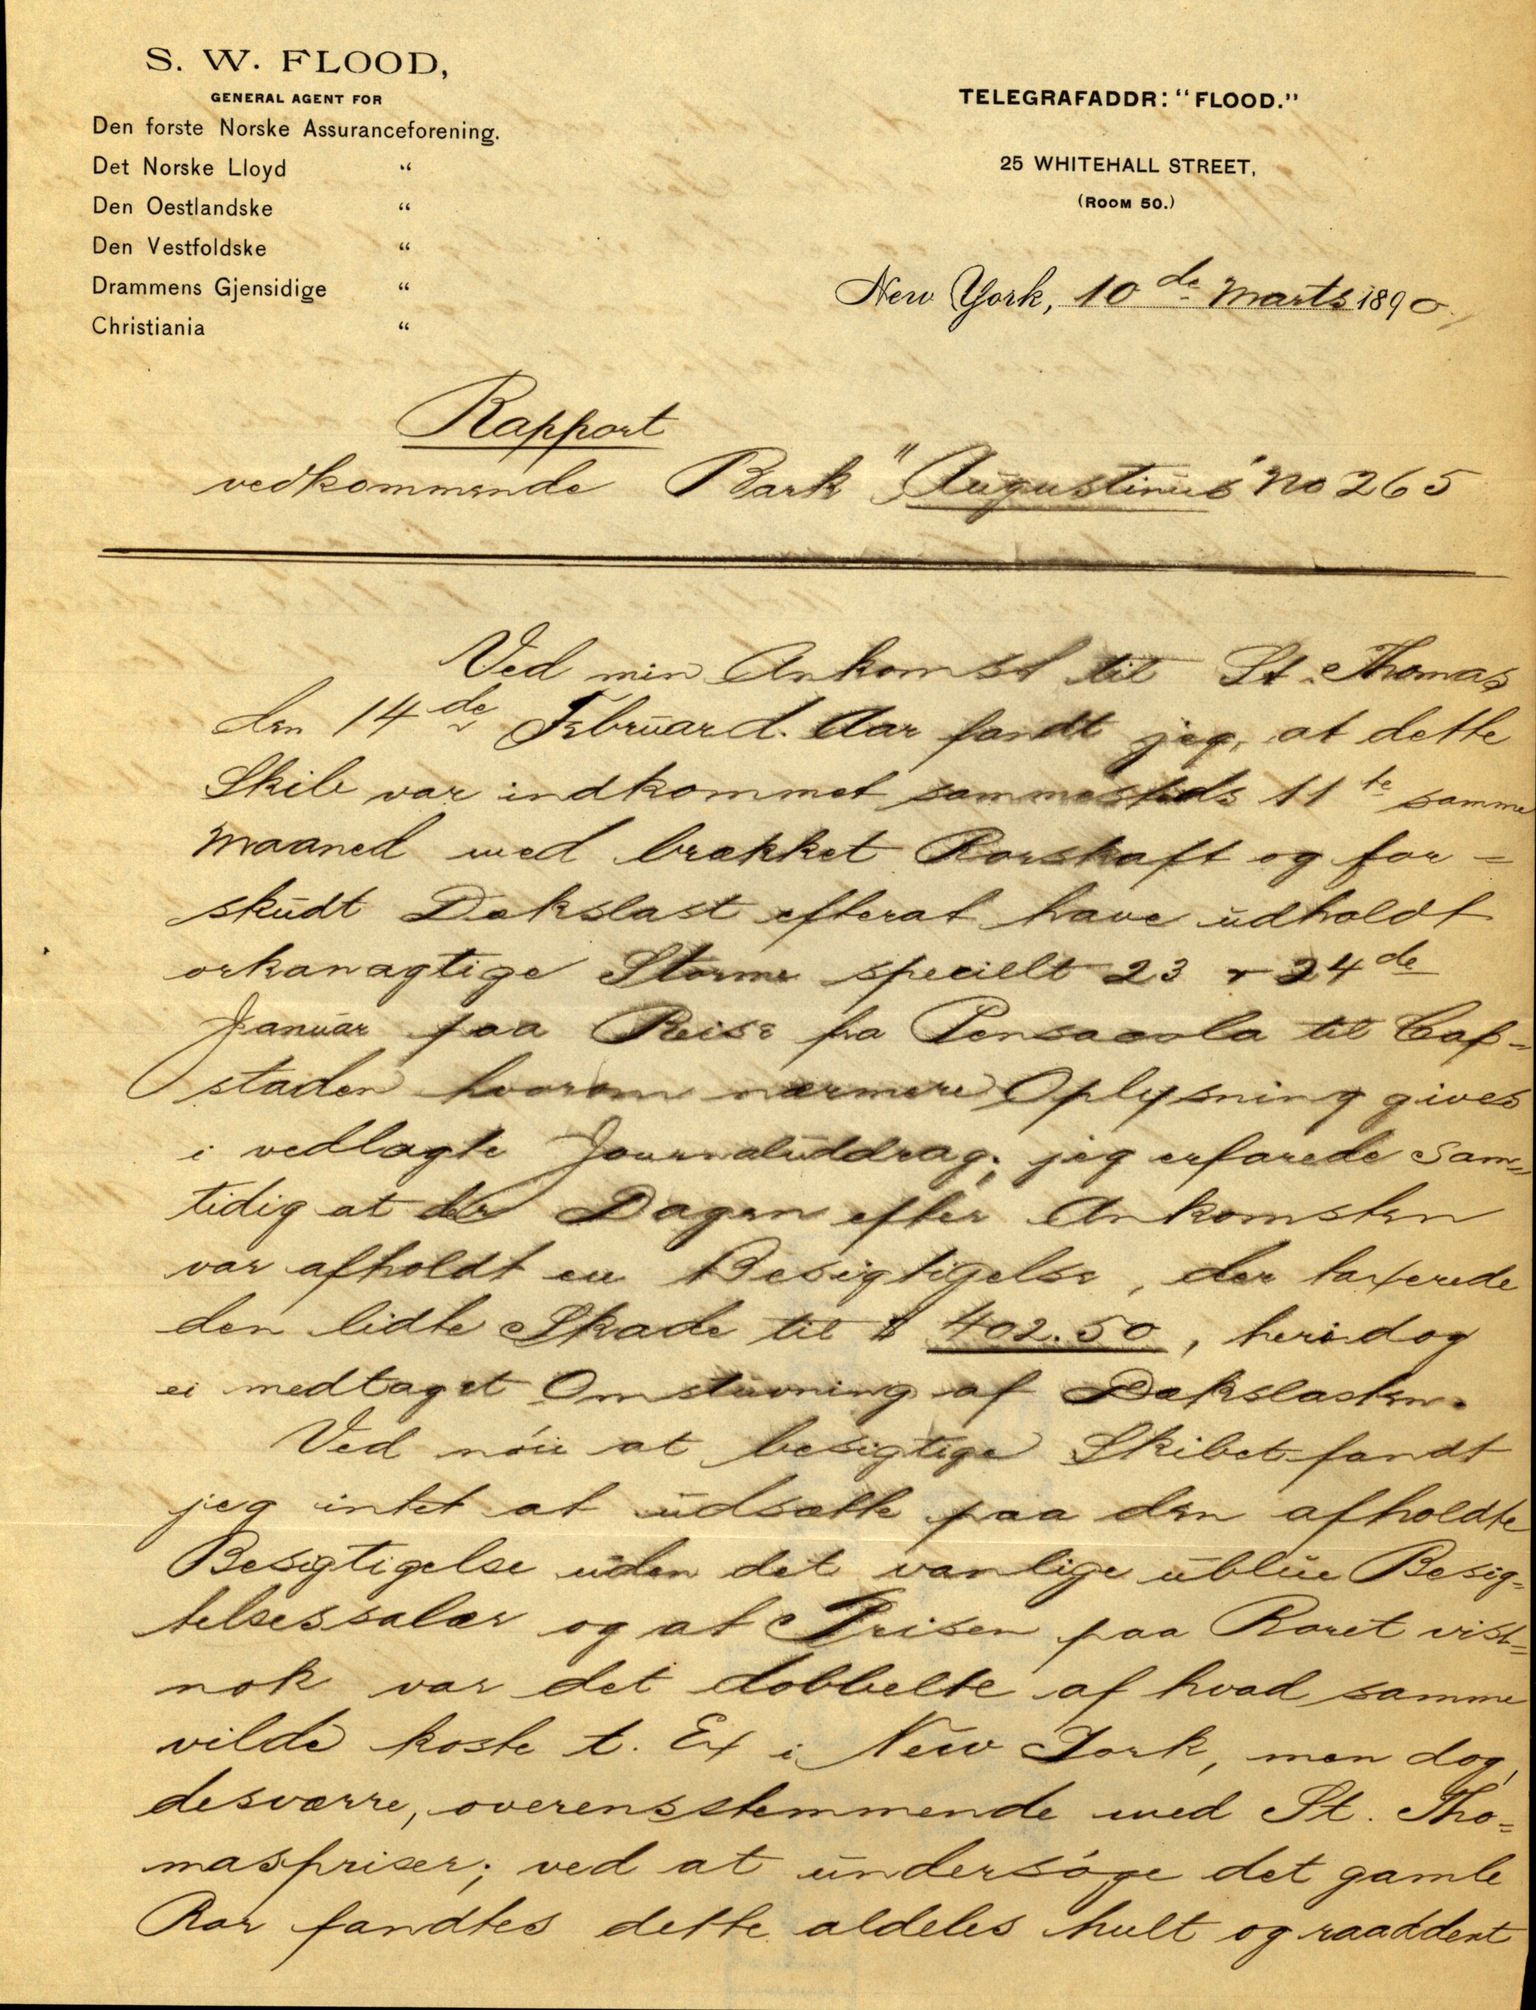 S. W. FLOOD,
GENERAL AGENT FOR
Den forste Norske Assuranceforening.
Det Norske Lloyd "
Den Oestlandske "
Den Vestfoldske "
Drammens Gjensidige "
Christiania "
TELEGRAFADDR: "FLOOD."
25 WHITEHALL STREET,
(ROOM 50.)
New York, 10 de Marts 1890.
Rapport
vedkommende Bark "Augustinus" No 265
Ved min Ankomst til St. Thomas
den 14 de Februar d. Aar fandt jeg, at dette
Skib var indkommet sammesteds 11 te samme
Maaned med brækket Rorskaft og for=
skudt Dækslast efterat have udholdt
orkanagtige Storme specielt 23 & 24 de
Januar paa Reise fra Pensacola til Cap=
staden hvorom nærmere Oplysning gives
i vedlagte Journaluddrag; jeg erfarede sam=
tidig at der Dagen efter Ankomsten
var afholdt en Besigtigelse, der taxerede
den lidte Skade til $ 402.50, heri dog
ei medtaget Omstuvning af Dækslasten.
Ved nöie at besigtige Skibet fandt
jeg intet at udsætte paa den afholdte
Besigtigelse uden det vanlige ublue Besig=
telsessalær og at Prisen paa Roret vist=
nok var det dobbelte af hvad samme
vilde koste t. Ex i New York, men dog,
desværre, overensstemmende med St. Tho=
maspriser; ved at undersöge det gamle
Ror fandtes dette aldeles hult og raaddent